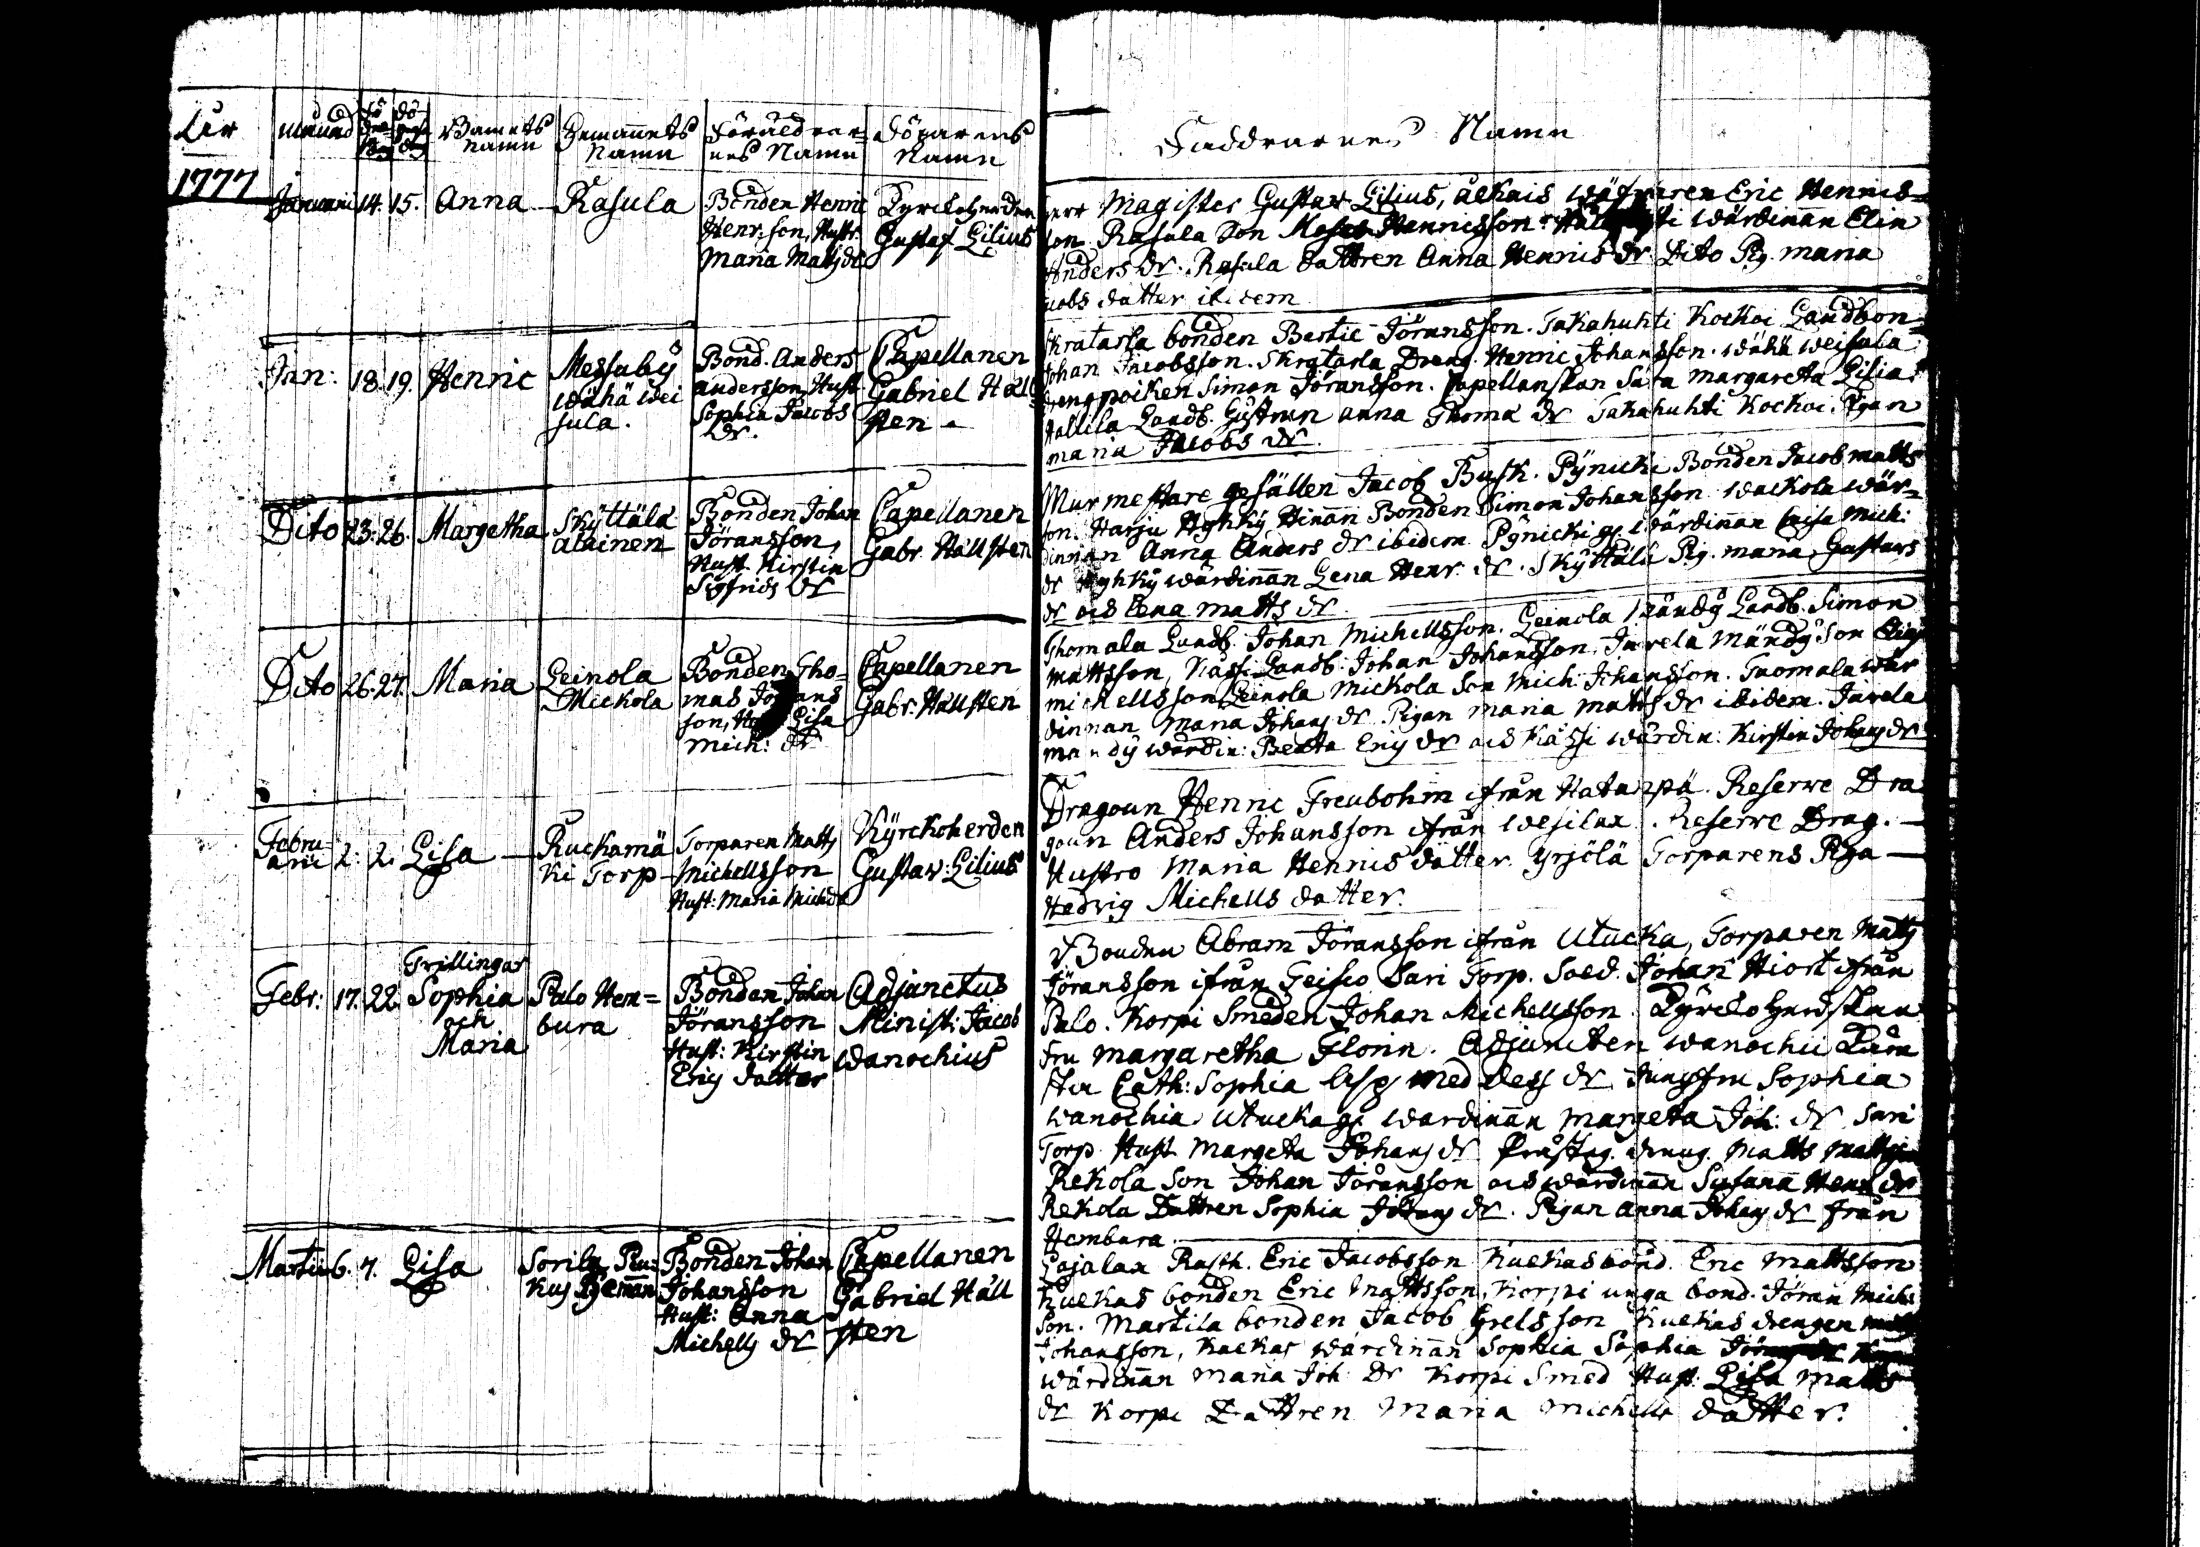 År
månad
Fö
dels
dag
Dö
pelse
dag
Barnets
Namn
Hemanets
Namn
Föräldrar=
nes Namn
Döparens
Namn
Faddrarnes Namn
1777
Januarii
14.
15.
Anna
Rasula
Bonden Henric
Henr:son, Hustr.
Maria Matsdr
Kyrckoherden
Gustaf Gilius
Herr Magister Gustav Gilius, Eric Henrics=
son Rasula Son Henricsson wärdinan Elin
Anders dr. Rasula dattren Anna Henrics dr Dito Pig. Maria
Jacobs datter ibidem
Jan:
18.
19.
Henric
Messuby
wähä wei
sula.
Bond. Anders
Andersson, Hust.
Sophia Jacobs
Dr.
Capellanen
Gabriel Häll
sten.
Skratarla bonden Bertil Jöransson. Takahuhti Kockoi Landbon=
Johan Jacobsson. Skratarla Dreng Henric Johansson. wähä weisula
drengpoiken Simon Jöransson. Capellanskan Sara Margareta Gilia.
Hallila Landb. Hustrun Anna Thoma dr Takahuhti Kockoi. Pigan
Maria Jacobs dr.
Dito
23.
26.
Margetha
Skyttälä
alainen
Bonden Johan
Jöransson,
Hust. Kirstin
Sigfrids dr
Capellanen
Gabr. Hällsten
Murmestare gesällen Jacob Busk. Pynicke Bonden Jacob Matts
son. Harju Bonden Simon Johansson wackola wär=
dinnan Anna Anders dr ibidem Pynicki wärdinnan Caisa Mich:
dr wärdinan Lena Henr. dr. Skyttälä Pig. Maria Gustavs
dr och Lena Matts dr.
Dito
26.
27.
Maria
Leinola
Mickola
Bonden Tho=
mas Jörans
son, Lisa
Mich: dr
Capellanen
Gabr. Hällsten
Thomala Landb. Johan Michellsson. Leinola Mändy Landb. Simon
Mattsson, Kässi Landb. Johan Johansson, Jurela Mändy Son
Michellsson, Leinola Mickola Son Mich: Johansson. Tuomala wär
dinnan Maria Johans dr. Pigan Maria Matts dr ibidem. Jurela
Mandy wärdin: Beata Erics dr och Kässi wärdin: Kirstin Johans dr
Febru=
arii
2.
2.
Lisa
Ruckamä
ki Torp
Torparen Matts
Michellsson
Hust: Maria Michdr
Kyrckoherden
Gustav: Gilius
Dragoun Henric Freubohm ifrån Hatanpä. Reserve Dra
goun Anders Johansson ifrån Wesilax. Reserve Drag.
Hustro Maria Henrics datter. Yrjölä Torparens Piga
Hedvig Michells datter.
Febr:
17.
22.
Tvillingar
Sophia
och
Maria
Palo Hem=
bura
Bonden Johan
Jöransson
Hust: Kirstin
Erics datter
Adjunctus
Minist: Jacob
Wanochius
Bonden Abram Jöransson ifrån Utucka, Torparen Matts
Jöransson ifrån Teisco Sari Torp. Sold. Johan Hiort ifrån
Palo. Korpi Smeden Johan Michellsson. Kyrckoherdskan
Fru Margaretha Florin. Adjuncten Wanochii Kära
Cath: Sophia med dess dr. Jungfru Sophia
Wanochia Utucka wärdinan Margeta Joh: dr Sari
Torp. Hust Margeta Johans dr. Matts
Rekola Son Johan Jöransson och wärdinan Susana Henr dr
Rekola Dattren Sophia Johans dr. Pigan Anna Johans dr från
Hembura.
Martii
6.
7.
Lisa
Sorila
Bonden Johan
Johansson
Hust: Anna
Michells dr
Capellanen
Gabriel Häll
sten
Lajalax Rusth. Eric Jacobsson Kuckas bond. Eric Mattsson
Kuckas bonden Eric Mattsson, Korpi unga bond. Jöran Mich
son. Martila bonden Jacob Grelsson, Kuckas drengen
Johansson, Kuckas wärdinan Sophia Sophia
wärdinan Maria Joh: Dr Korpi Smed Hust: Lisa Matts
dr Korpi Dattren Maria Michells datter.